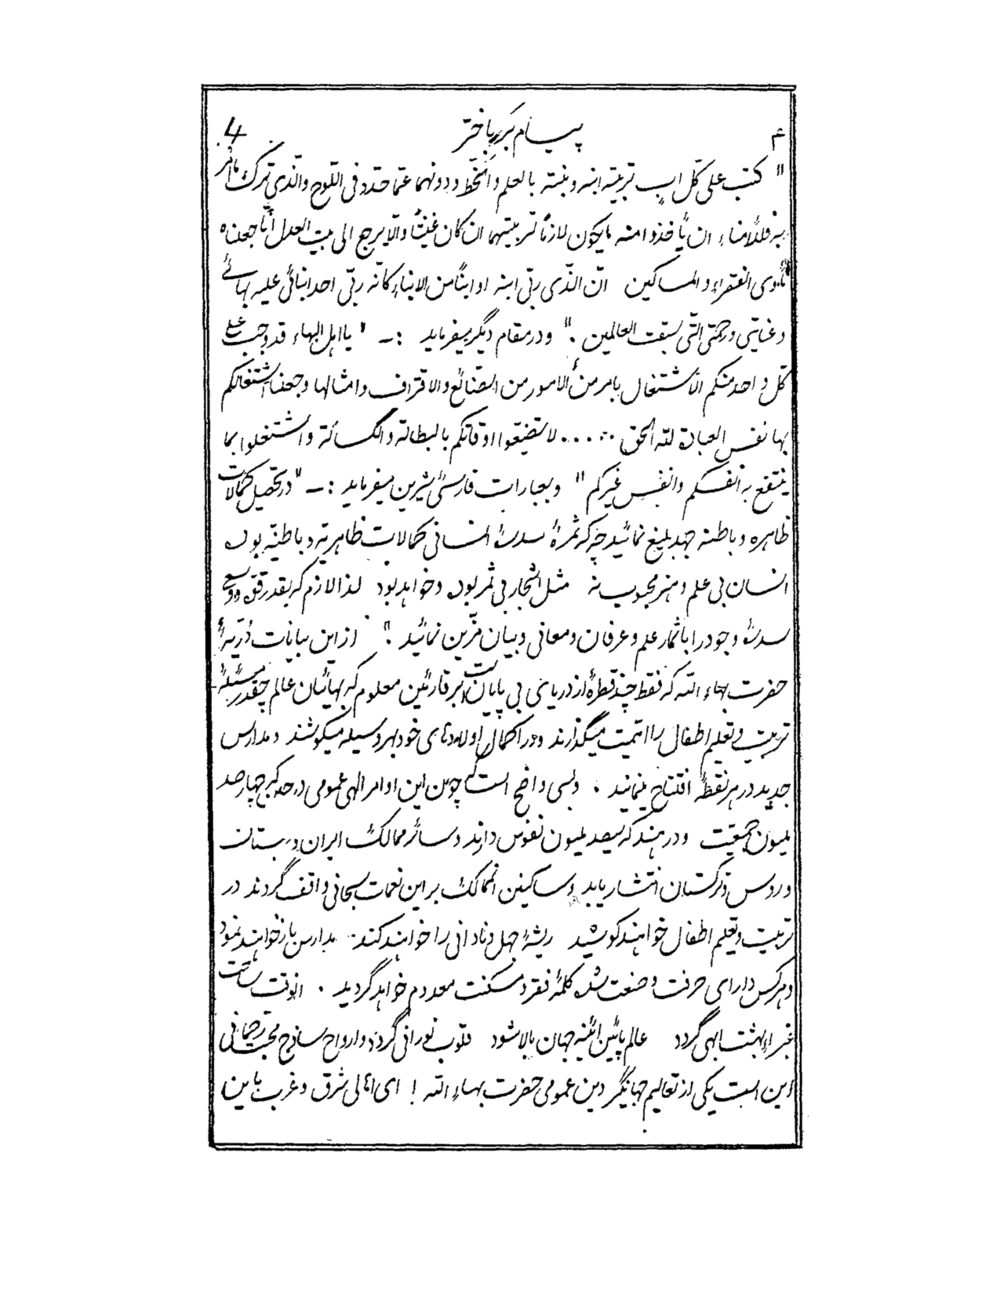 ۴ پیام بر باختر 4
" کتب علی کلّ اب تربیة ابنه و بنته بالعلم و الخطّ و دونهما عمّا حدّد فی اللّوح و الّذی ترک ما امر
به فللأمناء ان یأخذوا منه ما یکون لازماً لتربیتهما ان کان غنیّاً و الّا یرجع الی بیت العدل انّا جعلناه
مأوی الفقراء و المساکین انّ الّذی ربّی ابنه او ابناً من الابناء کانّه ربّی احد ابنائی علیه بهائی
و عنایتی و رحمتی الّتی سبقت العالمین . " و در مقام دیگر میفرماید :ـ " یا اهل البهاء قد وجب علی
کلّ واحد منکم الاشتغال بامر من الامور من الصّنائع و الاقتراف و امثالها و جعلنا اشتغالکم
بها نفس العبادة للّه الحقّ ...... لا تضیّعوا اوقاتکم بالبطالة و الکسالة و اشتغلوا بما
ینتفع به انفسکم و انفس غیرکم " و بعبارات فارسیّ شیرین میفرماید :ـ " در تحصیل کمالات
ظاهره و باطنه جهد بلیغ نمائید چه که ثمرۀ سدرۀ انسانی کمالات ظاهریّه و باطنیّه بوده
انسان بی علم و هنر محبوب نه مثل اشجار بی ثمر بوده و خواهد بود لذا لازم که بقدر وسع
سدرۀ وجود را باثمار علم و عرفان و معانی و بیان مزیّن نمائید . " از این بیانات دُرّیّۀ
حضرت بهاء اللّه که فقط چند قطرۀ از دریای بی پایان است بر قارئین معلوم که بهائیان عالم چقدر مسئلۀ
تربیت و تعلیم اطفال را اهمّیّت میگذارند و در اکمال اولادهای خود بهر وسیله میکوشند و مدارس
جدید در هر نقطۀ افتتاح مینمایند . و بسی واضح است که چون این اوامر الهی عمومی در چهارصد
ملیون جمعیّت و در هند که سیصد ملیون نفوس دارند و سائر ممالک ایران و عربستان
و روس و ترکستان انتشار یابد و ساکنین انممالک بر این نعمات سبحانی واقف گردند در
تربیت و تعلیم اطفال خواهند کوشید ریشۀ جهل و نادانی را خواهند کند مدارس باز خواهند نمود
و هر کس دارای حرفت و صنعت شده کلمۀ فقر و مسکنت معدوم خواهد گردید . انوقت ساحت
غبراء بهشت ابهی گردد عالم پائین ائینۀ جهان بالا شود قلوب نورانی گردد و ارواح ساذج محبت رحمانی
این است یکی از تعالیم جهانگیر دین عمومی حضرت بهاء اللّه ! ای اهالی شرق و غرب باین